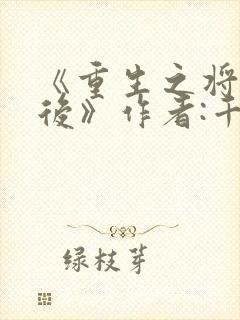 《重生之将
後》作者:千
绿枝芽